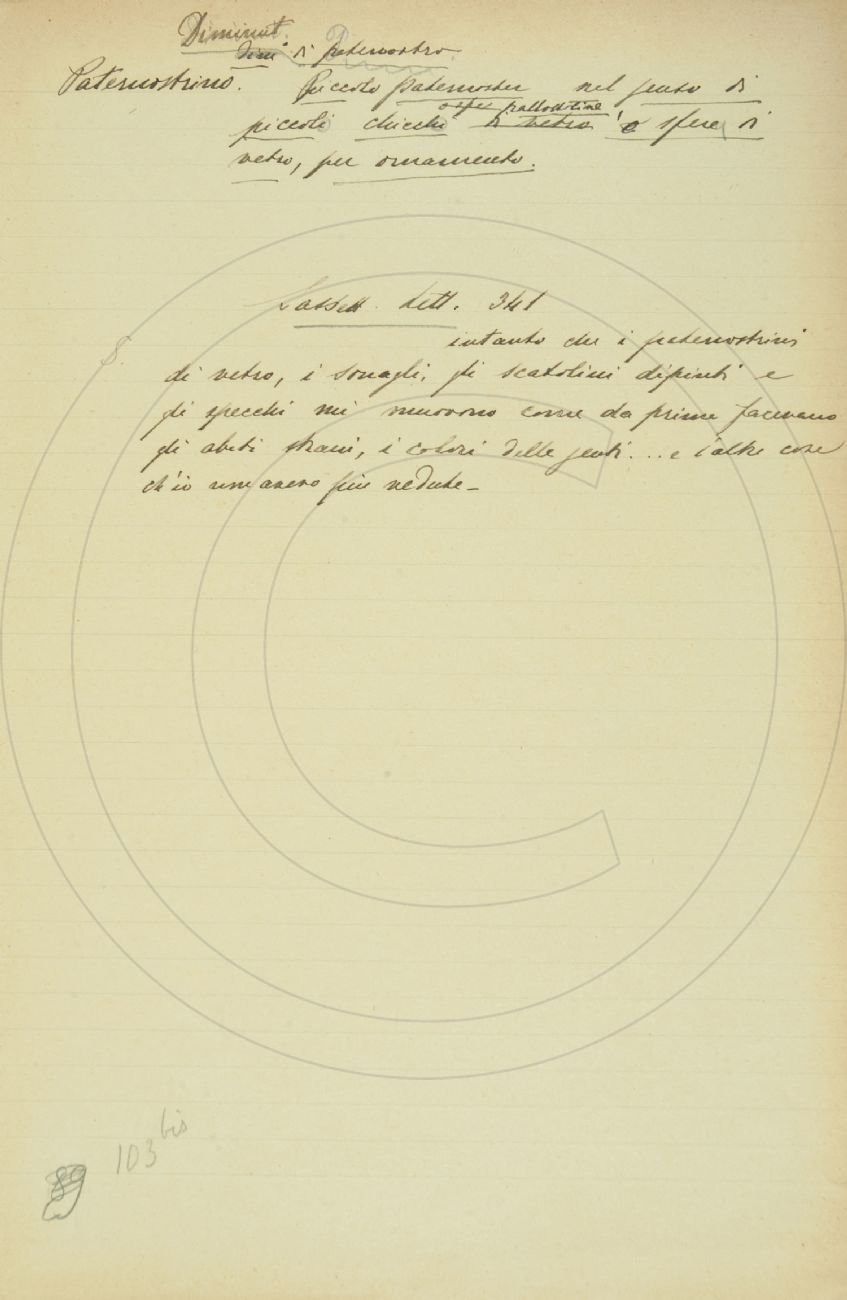 Diminut.
Dim. di paternostro
Paternostrino. Piccolo paternoster nel senso di
o sfere pallottoline
piccoli chicchi di vetro o sfere di
vetro, per ornamento.
Sassett. Lett. 341
S.
intanto che i paternostrini
di vetro, i sonagli, gli scatolini dipinti e
gli specchi mi muovono come da prima facevano
gli abiti strani, i colori delle genti... e l'altre cose
ch'io non avevo più vedute_
103 bis
89